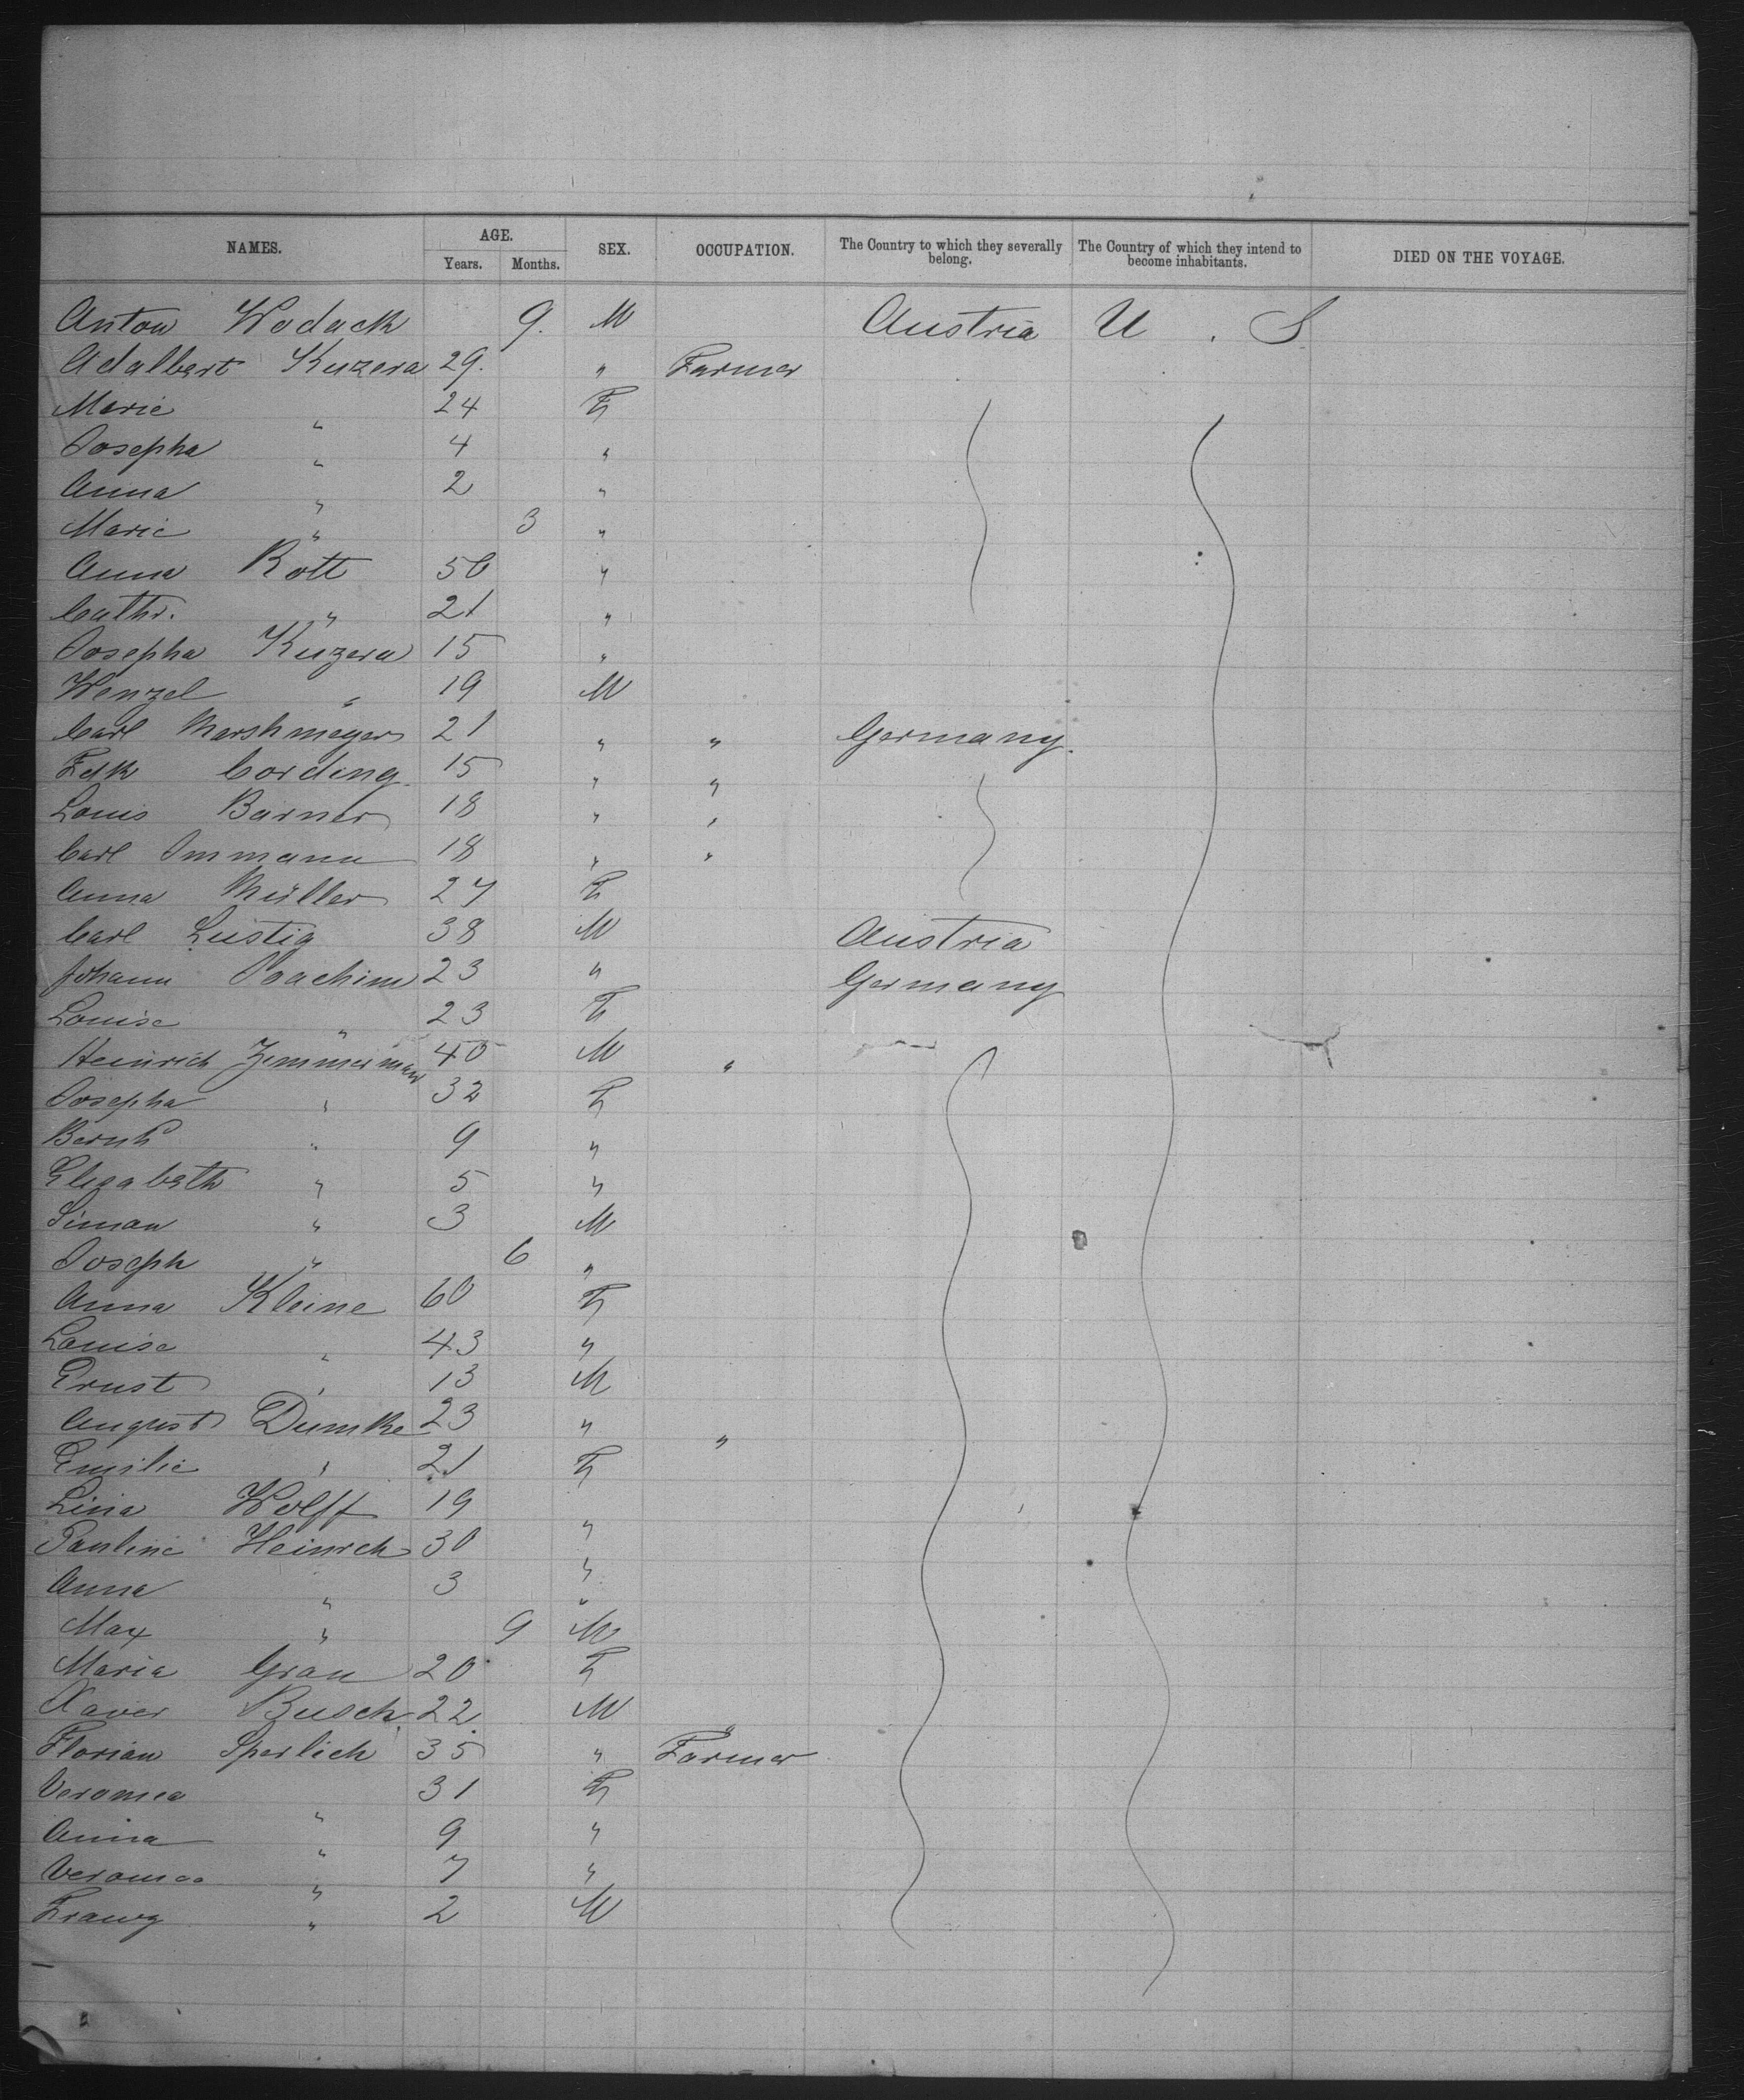 NAMES. AGE. SEX. OCCUPATION. The Country to which they severally belong. The Country of which they intend to become inhabitants. DIED ON THE VOYAGE.
Years. Months.
Anton Wodack 9. M Austria U. S
Adalbert Kuzera 29. " Farmer
Marie " 24 F
Josepha " 4 "
Anna " 2 "
Marie " 3 "
Anna Rott 50 "
Cathr. " 21 "
Josepha Kuzera 15 "
Wenzel " 19 M
Carl Marshmeyer 21 " " Germany.
Fdk Cording 15 " "
Louis Barner 18 " "
Carl Immann 18 " "
Anna Müller 27 F
Carl Lustig 38 M Austria
Johann Joachim 23 " Germany
Louise " 23 F
Heinrich Zimmerman 40 M "
Josepha " 32 F
Bernh " 9 "
Elisabeth " 5 "
Simon " 3 M
Joseph " 6 "
Anna Kleine 60 F
Louise " 43 "
Ernst " 13 M
August Dumke 23 " "
Emilie " 21 F
Lina Wolff 19 "
Pauline Heinrich 30 "
Anna " 3 "
Max " 9 M
Maria Grau 20 F
Xaver Busch 22 M "
Florian Sperlich 35 " Farmer
Veronica " 31 F
Anna " 9 "
Veronica " 7 "
Franz " 2 M